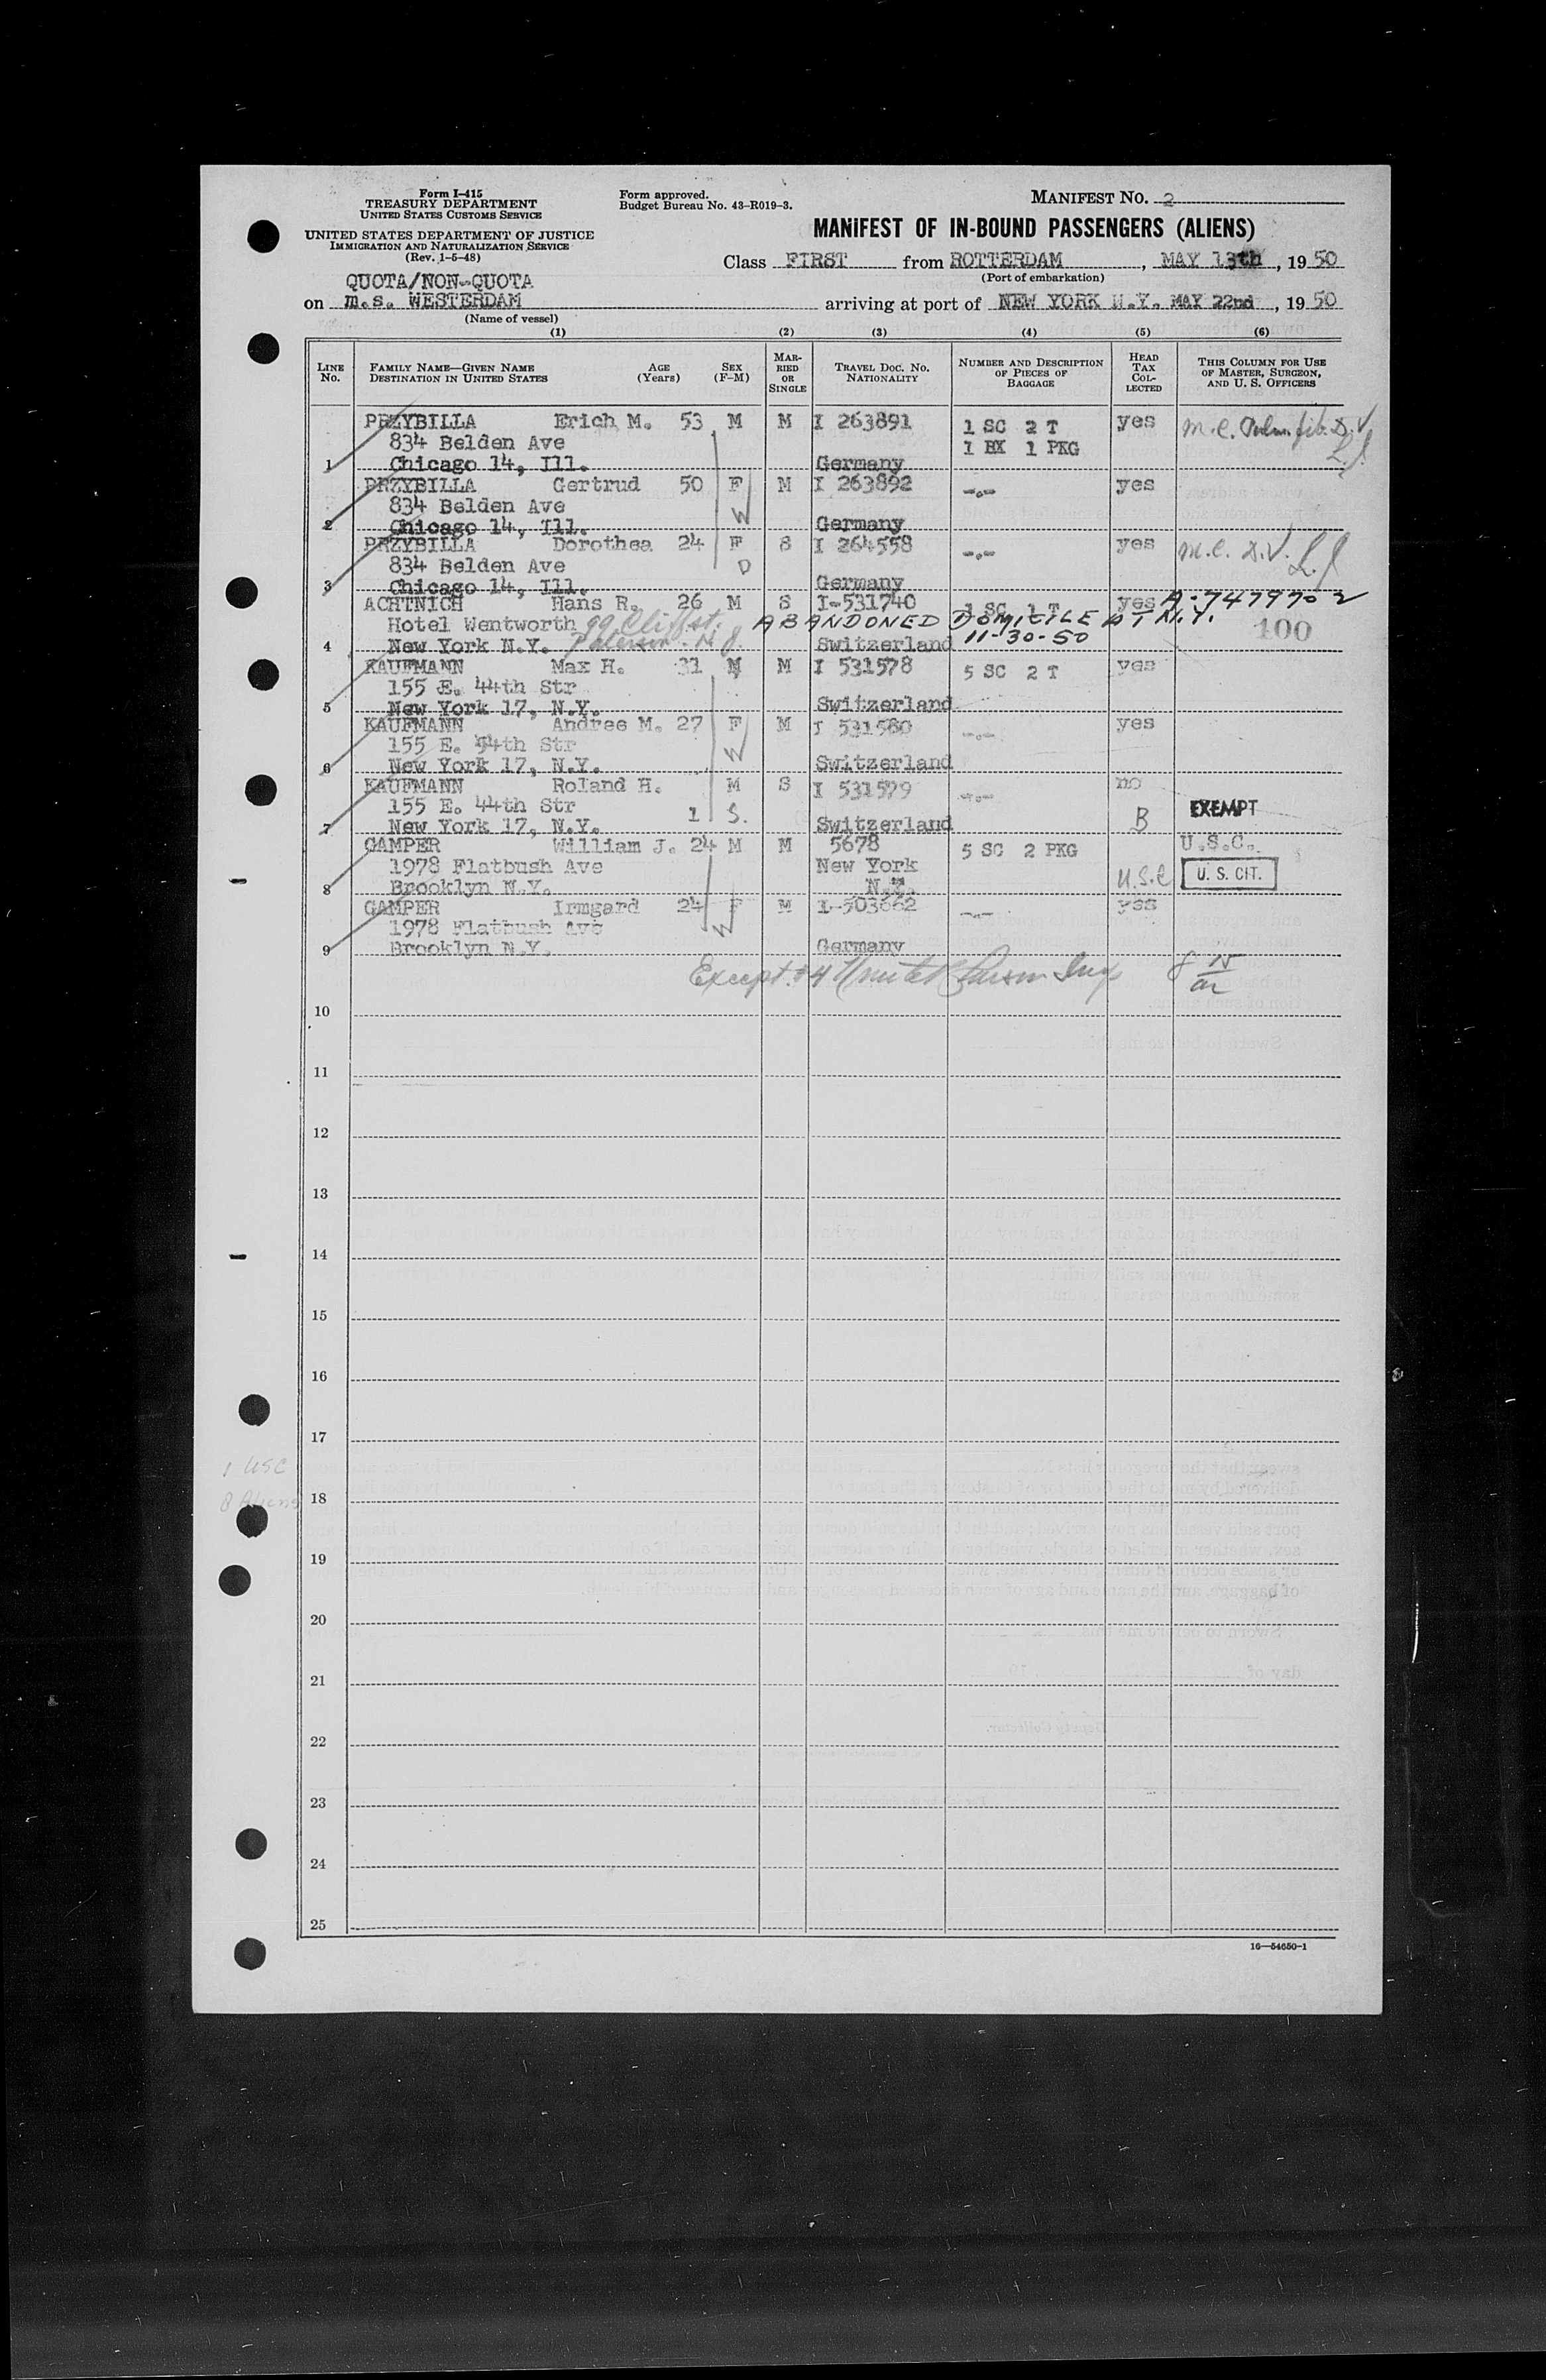 Form I-415
TREASURY DEPARTMENT
UNITED STATES CUSTOMS SERVICE
UNITED STATES DEPARTMENT OF JUSTICE
IMMIGRATION AND NATURALIZATION SERVICE
(Rev. 1-5-48)
Form approved.
Budget Bureau No. 43-R019-3.
MANIFEST NO. 2
MANIFEST OF IN-BOUND PASSENGERS (ALIENS)
Class FIRST from ROTTERDAM, MAY 13th, 1950
(Port of embarkation)
QUOTA/NON-QUOTA
on m.s. WESTERDAM arriving at port of NEW YORK N.Y. MAY 22nd, 1950
(Name of vessel)
(1) (2) (3) (4) (5) (6)
LINE NO. FAMILY NAME—GIVEN NAME DESTINATION IN UNITED STATES AGE (Years) SEX (F-M) MARRIED OR SINGLE TRAVEL DOC. NO. NATIONALITY NUMBER AND DESCRIPTION OF PIECES OF BAGGAGE HEAD TAX COLLECTED THIS COLUMN FOR USE OF MASTER, SURGEON, AND U. S. OFFICERS
PRZYBILLA Erich M. 53 M M I 263891 1 SC 2 T yes m.c.
834 Belden Ave 1 BX 1 PKG
1 Chicago 14, Ill. Germany
PRZYBILLA Gertrud 50 F M I 263892 -.- yes
834 Belden Ave W
2 Chicago 14, Ill. Germany
PRZYBILLA Dorothea 24 F S I 264558 -.- yes m.c. D.V.
834 Belden Ave D
3 Chicago 14, Ill. Germany
ACHTNICH Hans R. 26 M S I-531740 1 SC 1 T yes A-7479702
Hotel Wentworth 99 Cliff st. ABANDONED DOMICILE AT N.Y. 100
4 New York N.Y. Paterson - N.J. Switzerland 11-30-50
KAUFMANN Max H. 31 M M I 531578 5 SC 2 T yes
155 E. 44th Str
5 New York 17, N.Y. Switzerland
KAUFMANN Andree M. 27 F M I 531580 -.- yes
155 E. 44th Str W
6 New York 17, N.Y. Switzerland
KAUFMANN Roland H. M S I 531579 -.- no
155 E. 44th Str 1 S. EXEMPT
7 New York 17, N.Y. Switzerland B
GAMPER William J. 24 M M 5678 5 SC 2 PKG U.S.C.
1978 Flatbush Ave New York
8 Brooklyn N.Y. N.Y. U.S.C U. S. CIT.
GAMPER Irmgard 24 F M I-503662 -.- yes
1978 Flatbush Ave W
9 Brooklyn N.Y. Germany
Except #4
10
11
12
13
14
15
16
17
1 USC
18
8 Aliens
19
20
21
22
23
24
25
16—54650-1